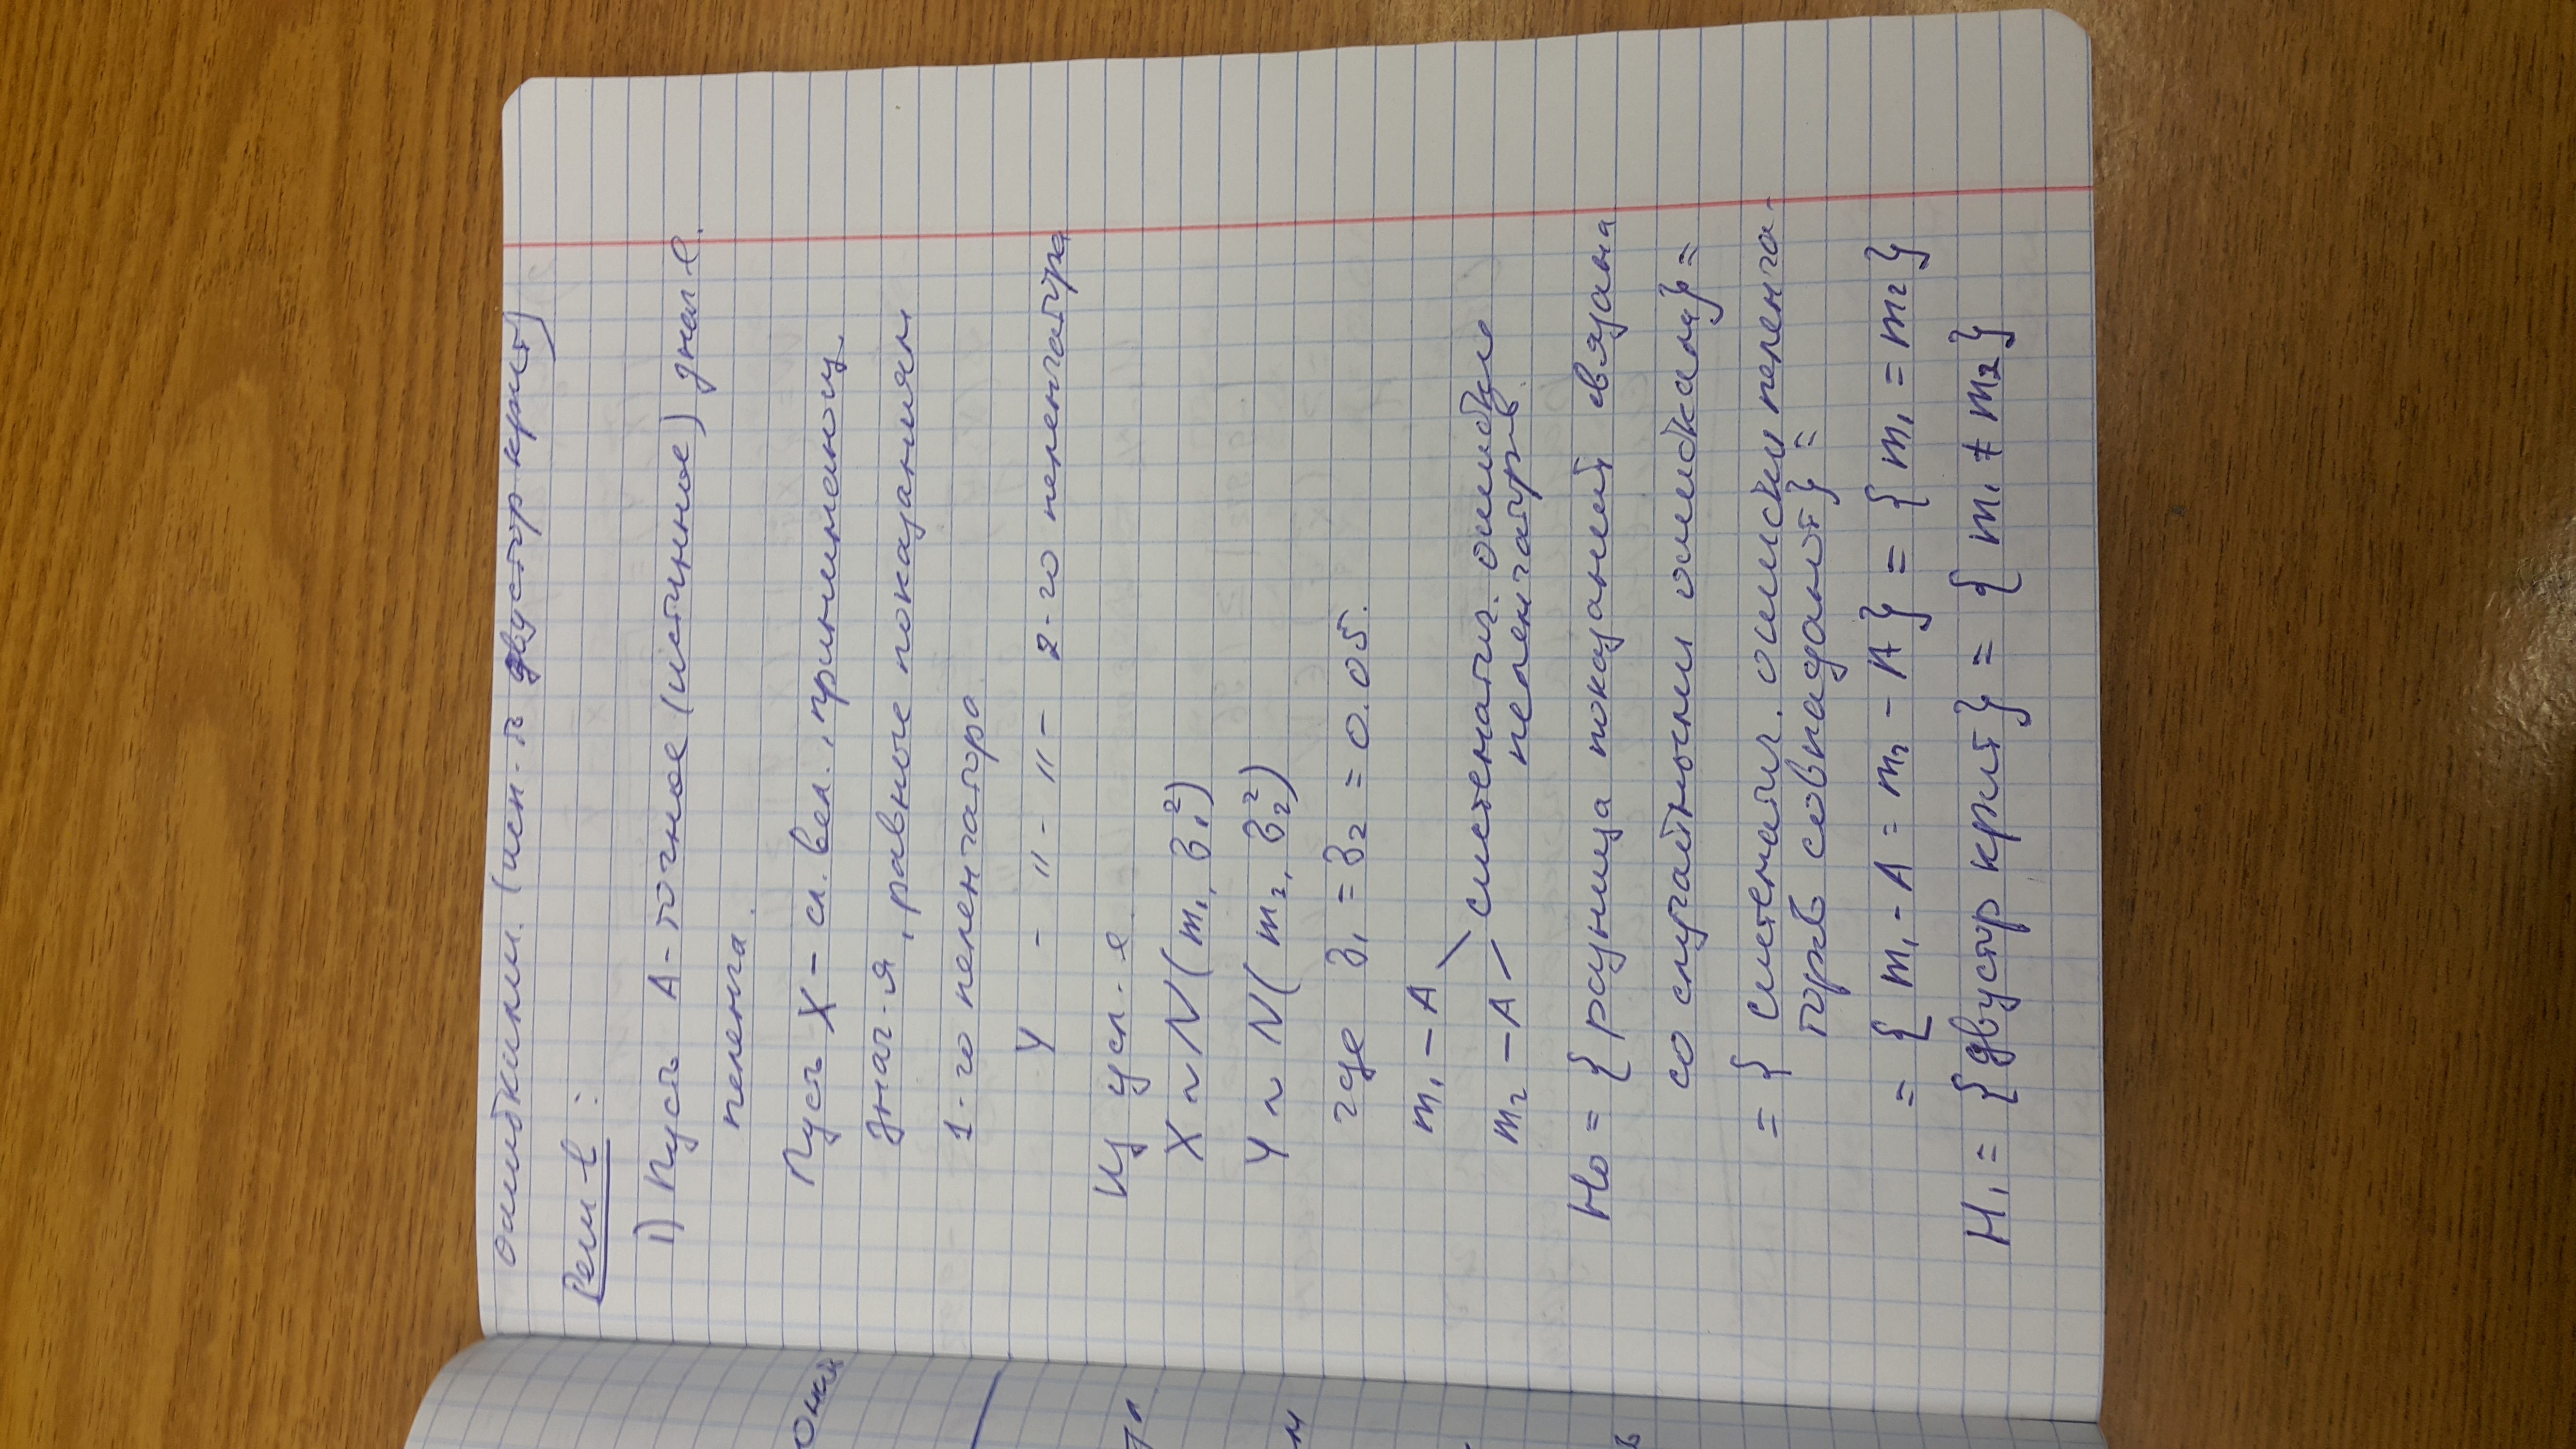 ошибками. (исп-ть двустор крит)
Реш-е:
1) Пусть А - точное (истинное) знач-е
пеленга.
Пусть X - сл. вел., принимающ.
знач-я, равные показаниям
1-го пеленгатора
Y - " - " - 2-го пеленгатора
Из усл-я
X ~ N(m₁, σ₁²)
Y ~ N(m₂, σ₂²)
где σ₁ = σ₂ = 0.05.
m₁ - A
m₂ - A
систематич. ошибки
пеленгатров
H₀ = { разница показаний связана
со случайными ошибками} =
= { систематич. ошибки пеленга-
торов совпадают} =
= { m₁ - A = m₂ - A} = { m₁ = m₂}
H₁ = {двустор крит} = { m₁ ≠ m₂}